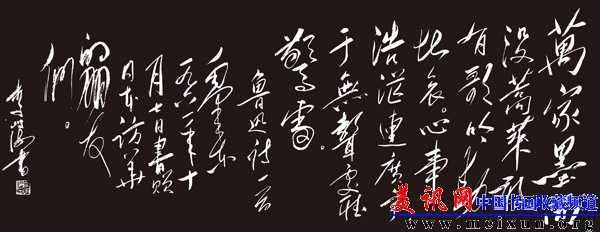 萬家墨面
沒蒿萊敢
有歌吟動
地哀。心事
浩茫連廣宇
于無聲處聽
驚雷。
魯迅詩一首
毛澤東
一九六一年十
月七日書贈
日本訪華
的朋友
們。
李 書
美讯网
中国书画收藏频道
www.meixun.org